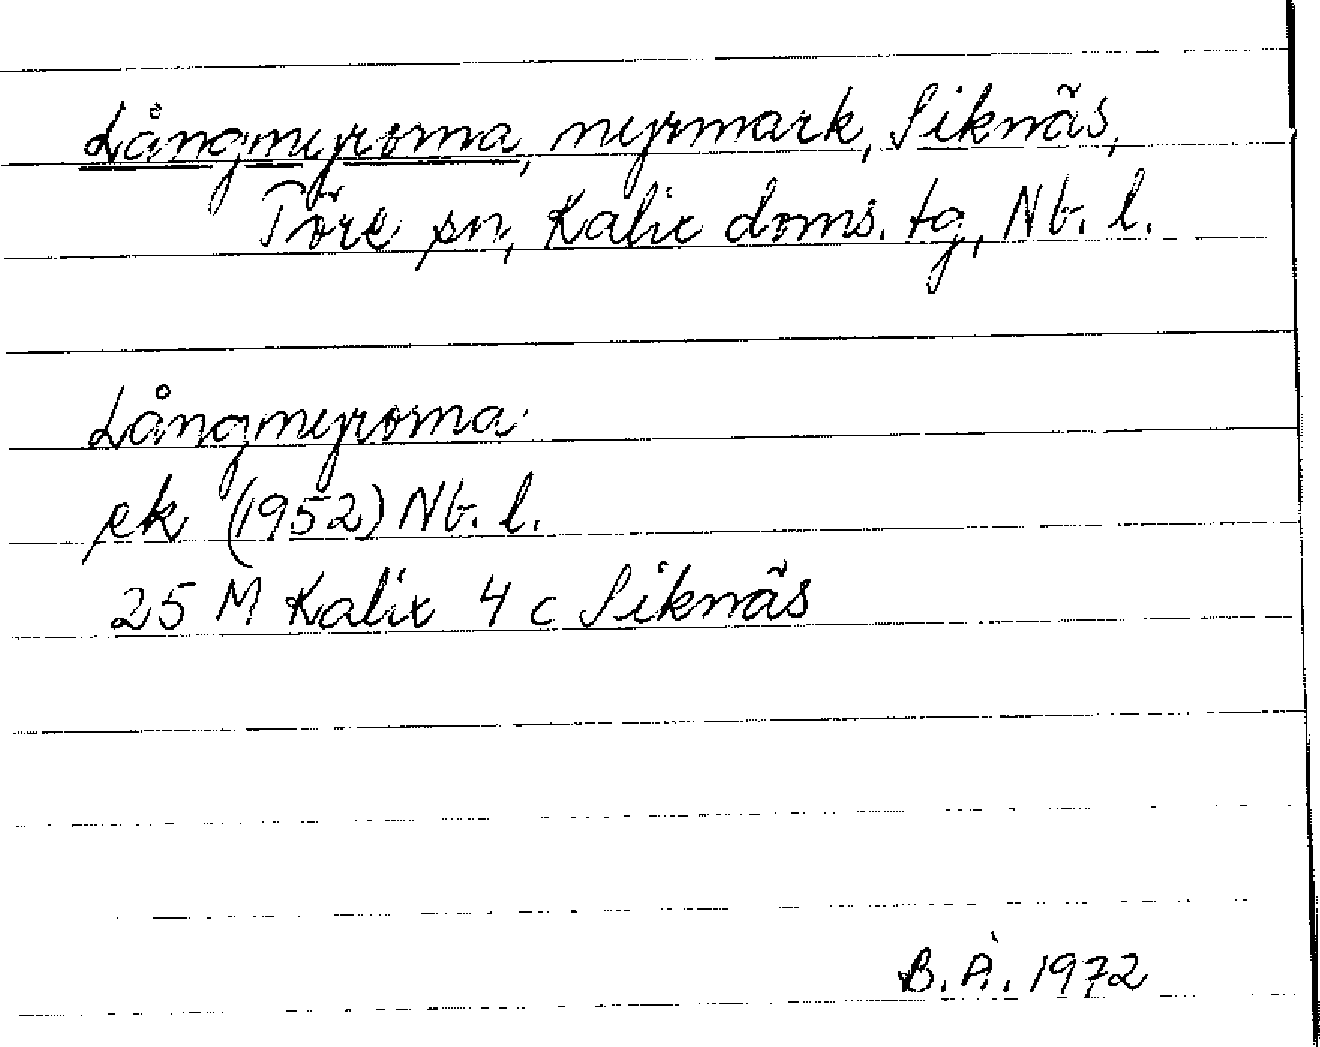 Långmyrorna, myrmark, Siknäs,
Töre sn, Kalix doms. tg, Nb. l.
Långmyrorna
ek (1952) Nb. l.
25 M Kalix 4 c Siknäs
B. Å. 1972